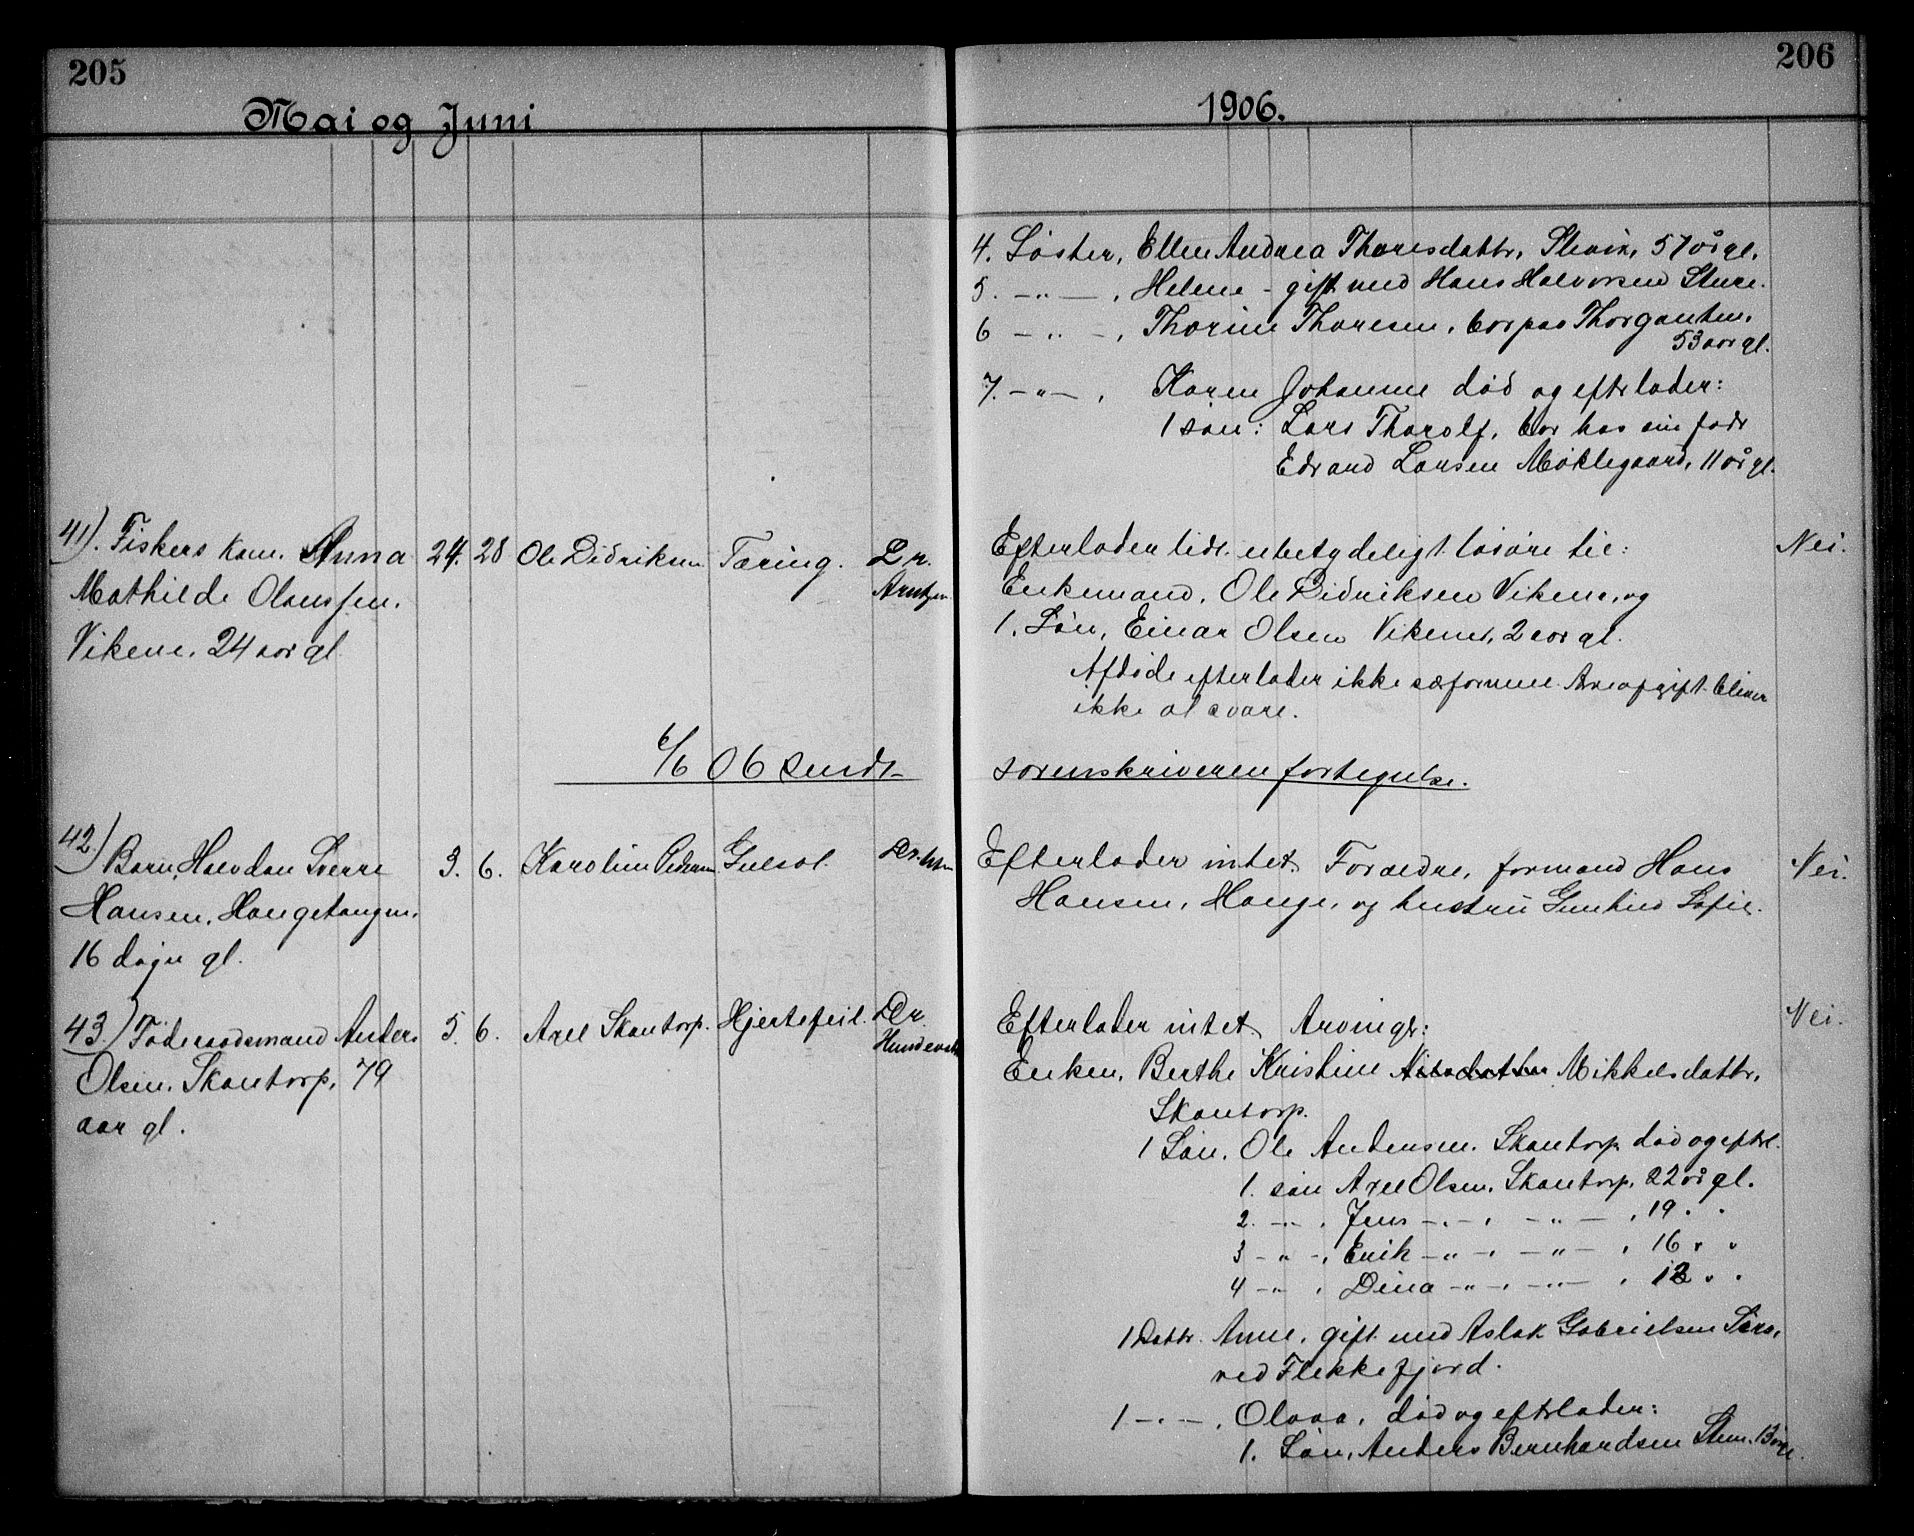 205
Mai og Juni
41). Fiskers kone. Anna 24. 28 Ole Didriksen Tæring. Dr.
Mathilde Olaussen. Arntzen
Vikene. 24 aar gl.
6/6 06 sendt
42.) Barn, Halvdan Sverre 3. 6. Karoline Pedersen Gulsot. Dr.
Hansen, Haugetangen.
16 døgn gl.
43.) Føderaadsmand Anders 5. 6. Axel Skantorp. Hjertefeil. Dr.
Olsen. Skantorp, 79
aar gl.
206
1906.
4. Søster, Ellen Andrea Thoresdattr, 57 år gl.
5. -"- , Helene - gift med Hans Halvorsen Sture.
6 -"-, Thorine Thoresen, bor paa Thorgauten.
53 aar gl.
7. -"- , Karen Johanne død og efterlader:
1 søn: Lars Tharolf, bor hos sin fadr
Edvard Larsen Møklegaard, 11 år gl.
Efterlader lidt ubetydeligt løsøre til: Nei.
Enkemand, Ole Didriksen Vikene, og
1. Søn, Einar Olsen Vikene, 2 aar gl.
Afdøde efterlader ikke særformue. Arveafgift bliver
ikke at svare.
sorenskriveren fortegnelse.
Efterlader intet. Forældre, formand Hans Nei.
Hansen, Hauge, og hustru Gunhild Sofie.
Efterlader intet. Arvinger: Nei.
Enken, Berthe Kristine Nilsdatter Mikkelsdattr,
Skantorp.
1 Søn, Ole Andersen. Skantorp død og efterl.
1. søn Axel Olsen, Skantorp, 22 år gl.
2. -"- , Jens -"-, -"- , 19 " "
3 -"-, Erik -"-, -"- , 16 " "
4 -"- , Dina -"-, -"- , 12 " "
1 Dattr. Anne, gift med Aslak Gabrielsen
ved Flekkefjord.
1 -"-, Olava, død og efterlader:
1. Søn, Anders Bernhardsen 13 år gl.